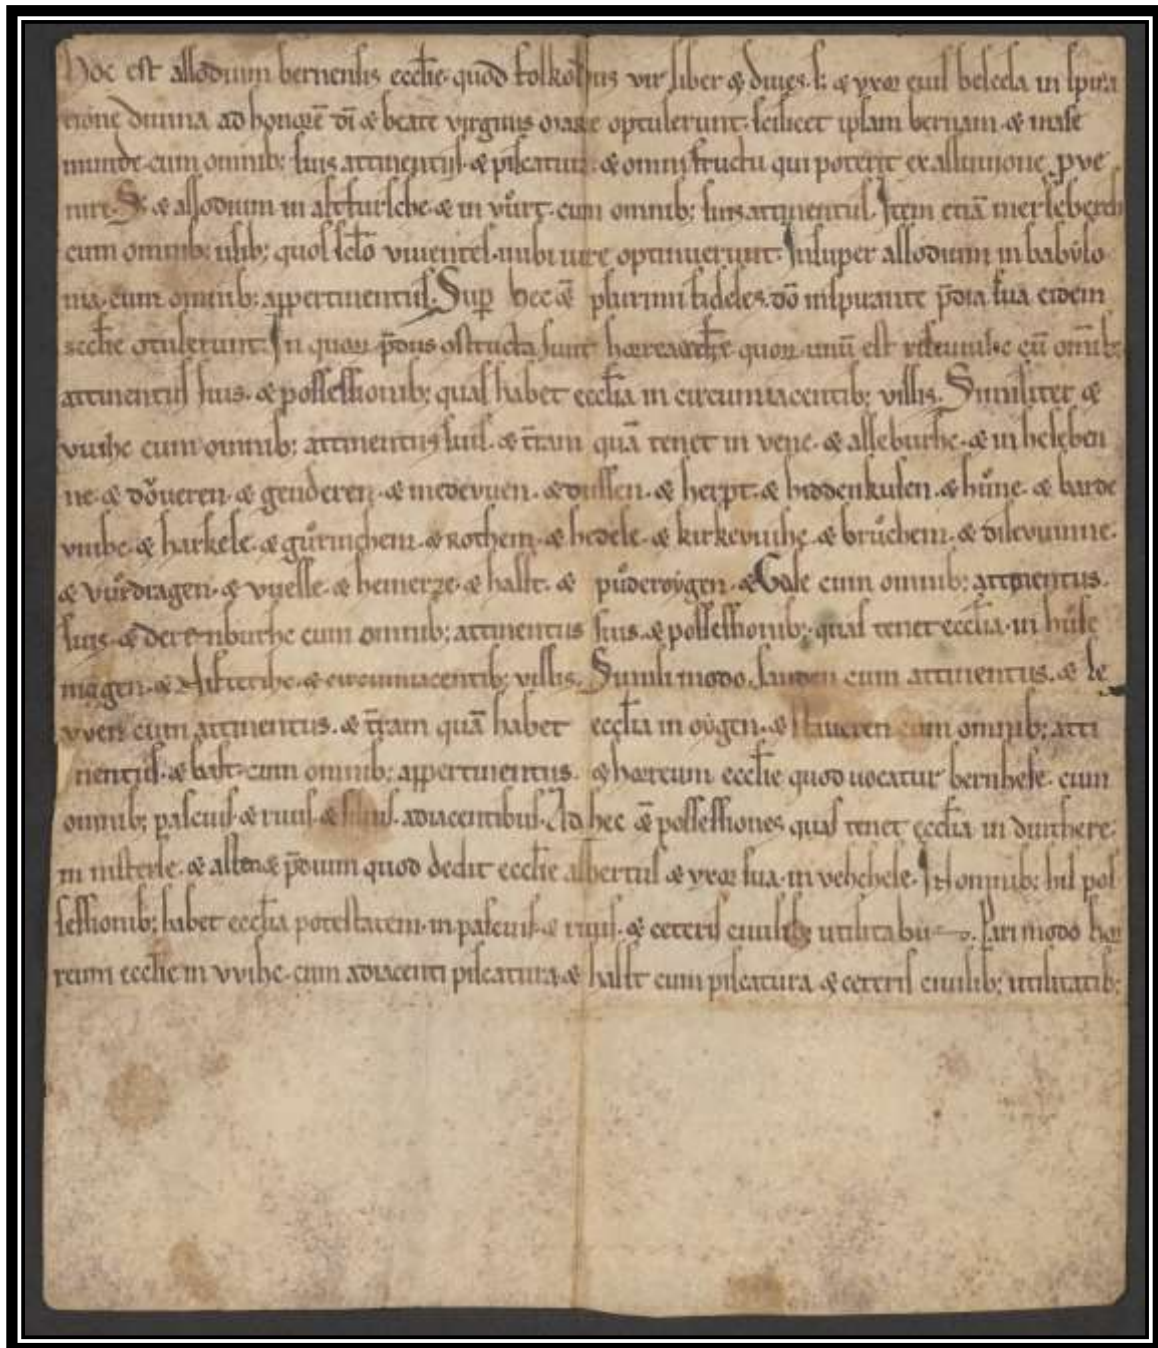 Hoc est allodium bernensis eccl̄ie. quod folkoldus vir liber & diues. s; & vxor eius beleela in spira
tione diuina ad honorē dī & beate virginis marie optulerunt. scilicet ipsam bernam. & mase
munde. cum omnib; suis attinentiis. & piscatura. & omni fructu qui poterit ex alluuione. ꝓue
nire. & allodium in altfurlche. & in vůrt. cum omnib; suis attinentiis. Item etiā merleberch
cum omnib; usib; quos iure optinuerunt. Insuper allodium in babÿlo
nia. cum omnib; appertinentiis. Suꝑ hec & plurimi fideles. dō inspirante p̄dia sua eidem
eccl̄ie optulerunt. In quoꝝ p̄diis ostructa sunt horrea eccl̄ie quoꝝ unū est cū omīb;
attinentiis suis. & possessionib; quas habet eccl̄ia in circumiacentib; villis. Similiter &
vuihc cum omnib; attinentiis suis. & t̄ram quā tenet in vene. & alleburhc. & in heleben
ne. & dȯueren. & genderen. & medevuen. & dussen. & herpt. & hiddenkusen. & hůne. & barde
vuihc. & harkele. & gůrinchem. & rothem. & hedele. & kirkevuihc. & brůchem. & dilevuinne.
& vuͦdragen. & vuelle. & hemerze. & halst. & půderoÿgen. & Gale cum omnib; attinentiis.
suis. & derenburhc cum omnib; attinentiis suis. & possessionib; quas tenet eccl̄ia. in hůse
nigen. & circumiacentib; villis. Simili modo. cum attinentiis. & le
vven cum attinentiis. & t̄ram quā habet eccl̄ia in oÿgen. & staueren cum omnib; atti
nentiis. & bast. cum omnib; appertinentiis. & horreum eccl̄ie quod uocatur bernhese. cum
omnib; pascuis & riuis. & siluis. adiacentibus. Ad hec & possessiones quas tenet eccl̄ia in duithere.
in nisterle. & p̄dium quod dedit eccl̄ie albertus & vxor sua. in vehchele. In omnib; his pos
sessionib; habet eccl̄ia potestatem. in pascuis. & riuis. & ceteris ciuilib; utilitatibus. Pari modo hor
reum eccl̄ie in vvihc. cum adiacenti piscatura. & halst cum piscatura & ceteris ciuilib; utilitatib;